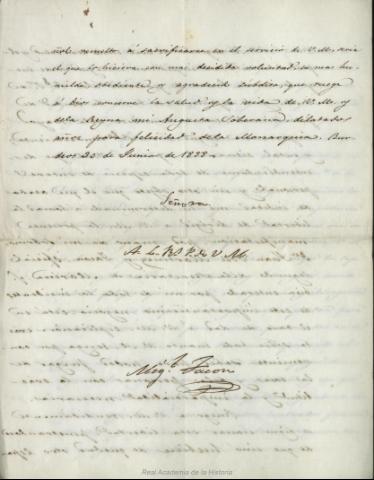 resuelto á sacrificarse en el servicio de V. M., seria
el que lo hiciera con mas decidida voluntad, su mas hu-
milde obediente y agradecido subdito, que ruega
á Dios conserve la salud y la vida de V. M. y
de la Reyna mi Augusta Soberana dilatados
años para felicidad de la Monarquia. Bur-
deos 23 de Junio de 1833.
Señora
A. L. R. P. de V. M.
Mig.l Tacon
Real Academia de la Historia